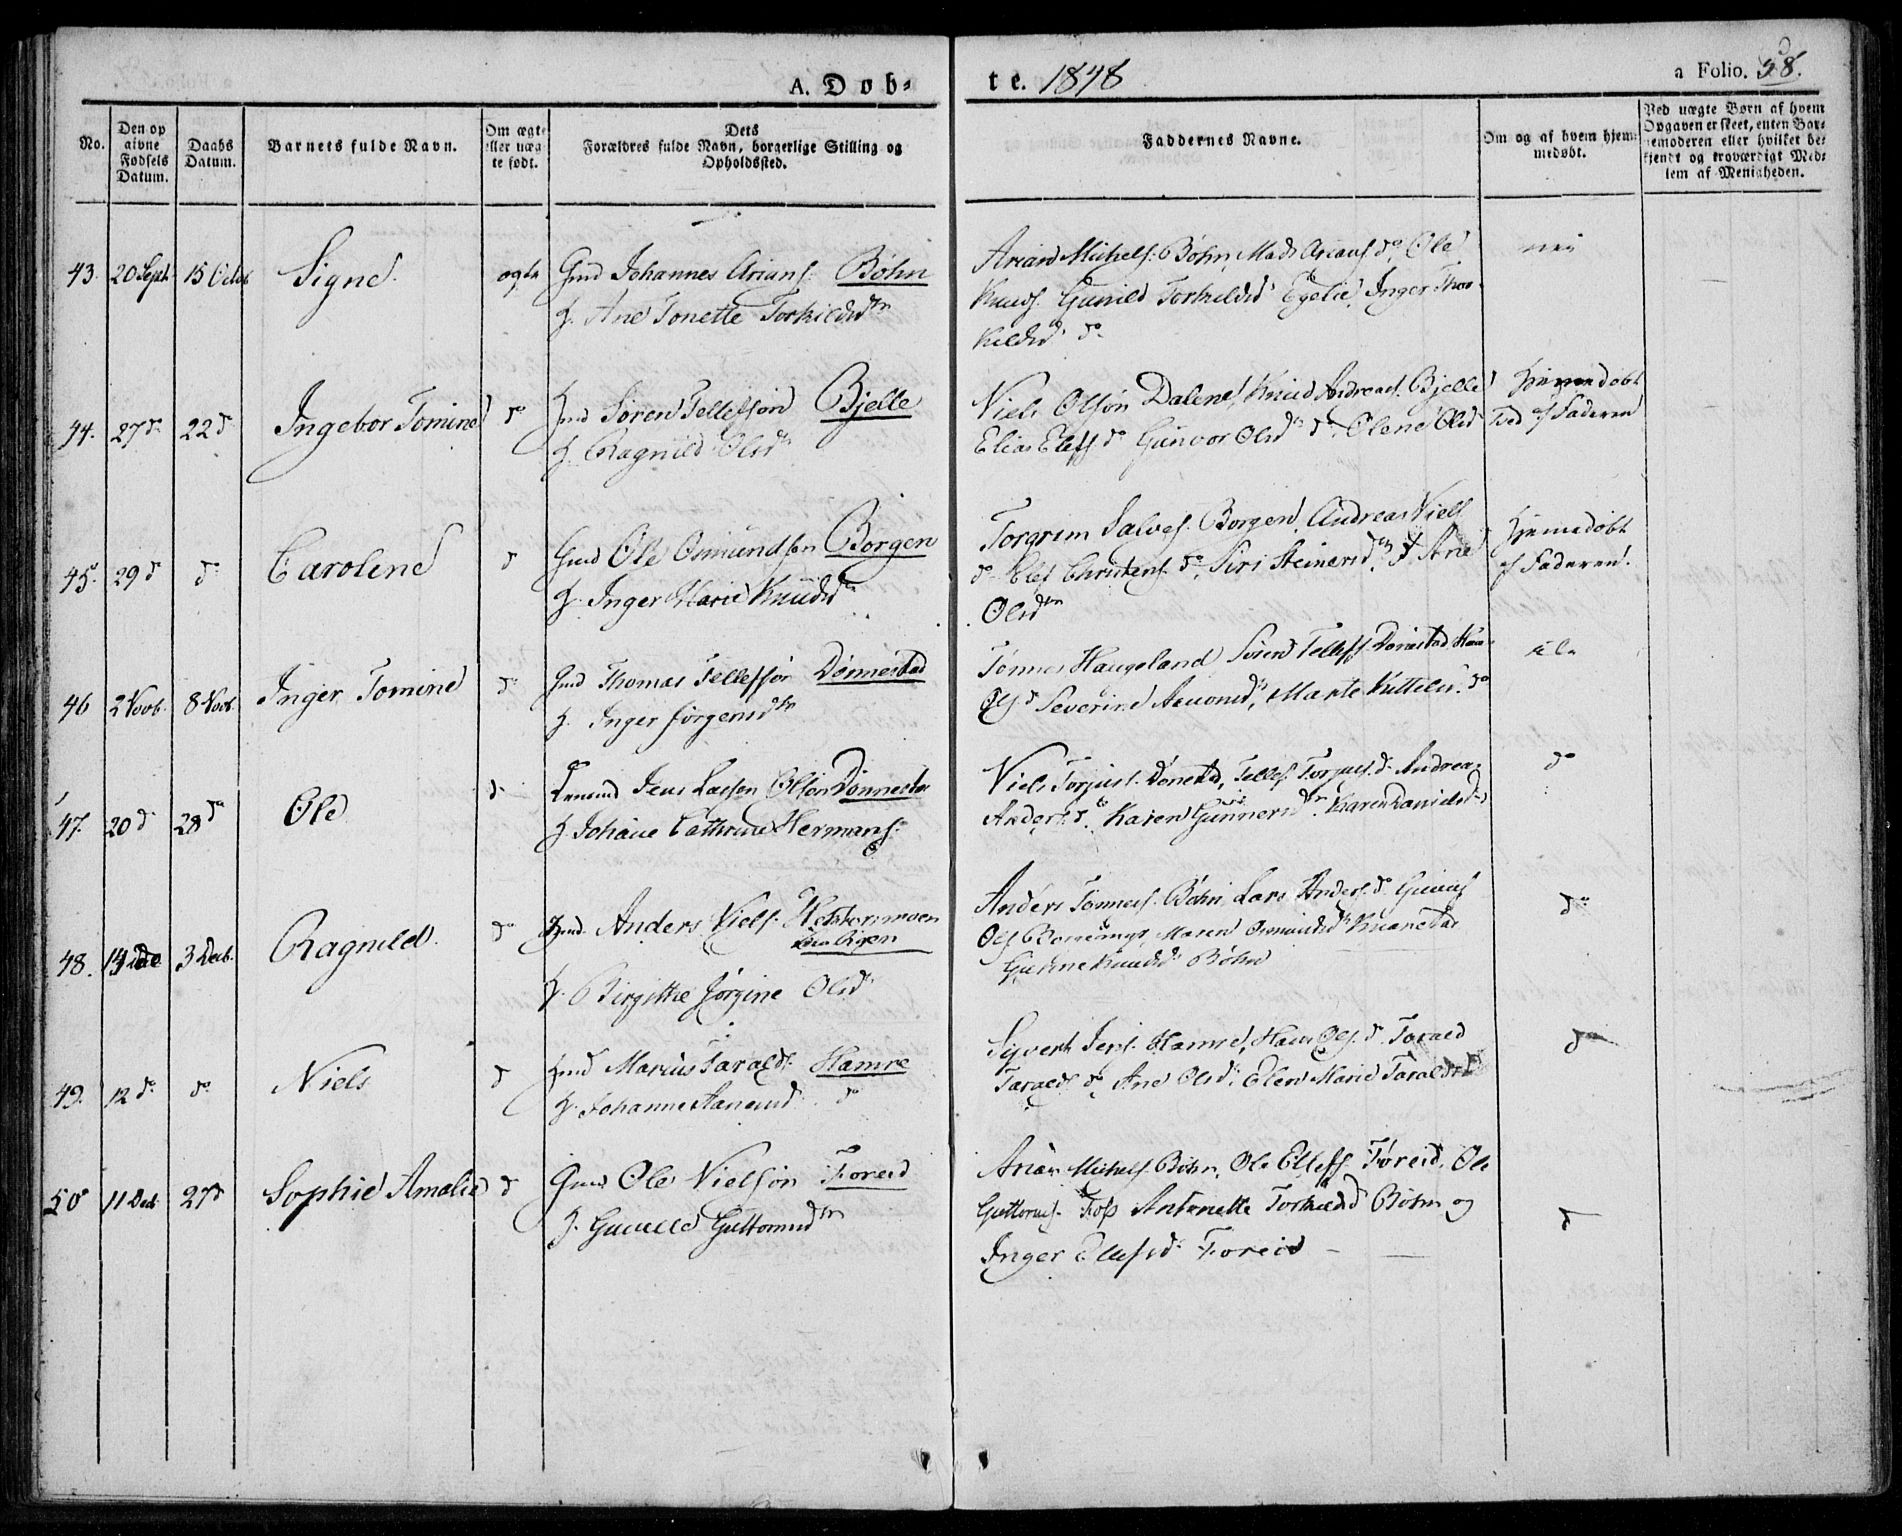 A. Døb-
te. 1848
a Folio. 58.
No.
Den op
givne
Fødsels
Datum.
Daabs
Datum.
Barnets fulde Navn.
Om ægte
eller uæg
te født.
Dets
Forældres fulde Navn, borgerlige Stilling og
Opholdssted.
Faddernes Navne.
Om og af hvem hjem-
medøbt.
Ved uægte Børn af hvem
Opgaven er skeet, enten Bar-
nemoderen eller hvilket be-
kjendt og troværdigt Med-
lem af Menigheden.
43. 20 Sept. 15 Octob Signe. ægte Gmd Johannes Arians. Bøhn
H. Ane Tonette Torkildsdtr
Arian Michels. Bøhn, Mads Arians do, Ole
Knuds. Gunild Torkildsd Egelie, Inger Thor-
kildsd do
nei
44. 27 do 22 d Ingebor Tomine do Gmd Søren Tellefsøn Bjelle
H. Ragnild Olsdtr
Niels Olsøn Dalene, Knud Andreas. Bjelle
Elias Elefs. do Gunvor Olsdtr do, Olene Olsd
Hjemmedøbt
af Faderen
45. 29 d do Carolene d Gmd Ole Osmundsøn Borgen
H. Inger Marie Knudsdtr
Torgrim Salves. Borgen, Andreas Niels
do Elef Christens. do, Siri Steinersdtr, Ane
Olsdtr
Hjemedøbt
af Faderen.
46 2 Novb. 8 Novb. Inger Tomine do Gmd Thomas Tellefsøn Dønnestad
H. Inger Jørgensdtr
Tønnes Haugeland Søren Tellefs. Dønnestad
Ols d Severine Marte Kittelsd. do
47. 20 d 28 do Ole d Jens Olsøn Dønnestad
H. Johane Cathrine Hermans.
Niels Torjus. Dønestad, Tellef Torjus. d. Andreas
Anders. do. Karen Gunners dtr Karen Danielsd
do
48. 14 3 Decb. Ragnild. do Gmd. Anders Niels.
H. Birgitte Jørgine Olsd.
Anders Tønnes. Bøhn, Lars Anders. do
Ols Maren Osmundsdtr
Gunne Knudsd Bøhn
do
49. 12 do do Niels d Gmd Marcus Taralds. Hamre
H. Johanne do
Syvert Jens. Hamre, Hans Ols. do Tarald
Taralds. do Ane Olsd. Elen Marie Taraldsd
do
50 11 Decb 27 d Sophie Amalie d Gmd Ole Nielsøn Foreid
H. Gunild Guttormsdtr
Arian Michels. Bøhn, Ole Ellefs. Føreid, Ole
Guttorms. Foss Antonette Torkildsd Bøhn og
Inger Ellefsd. Foreid
d